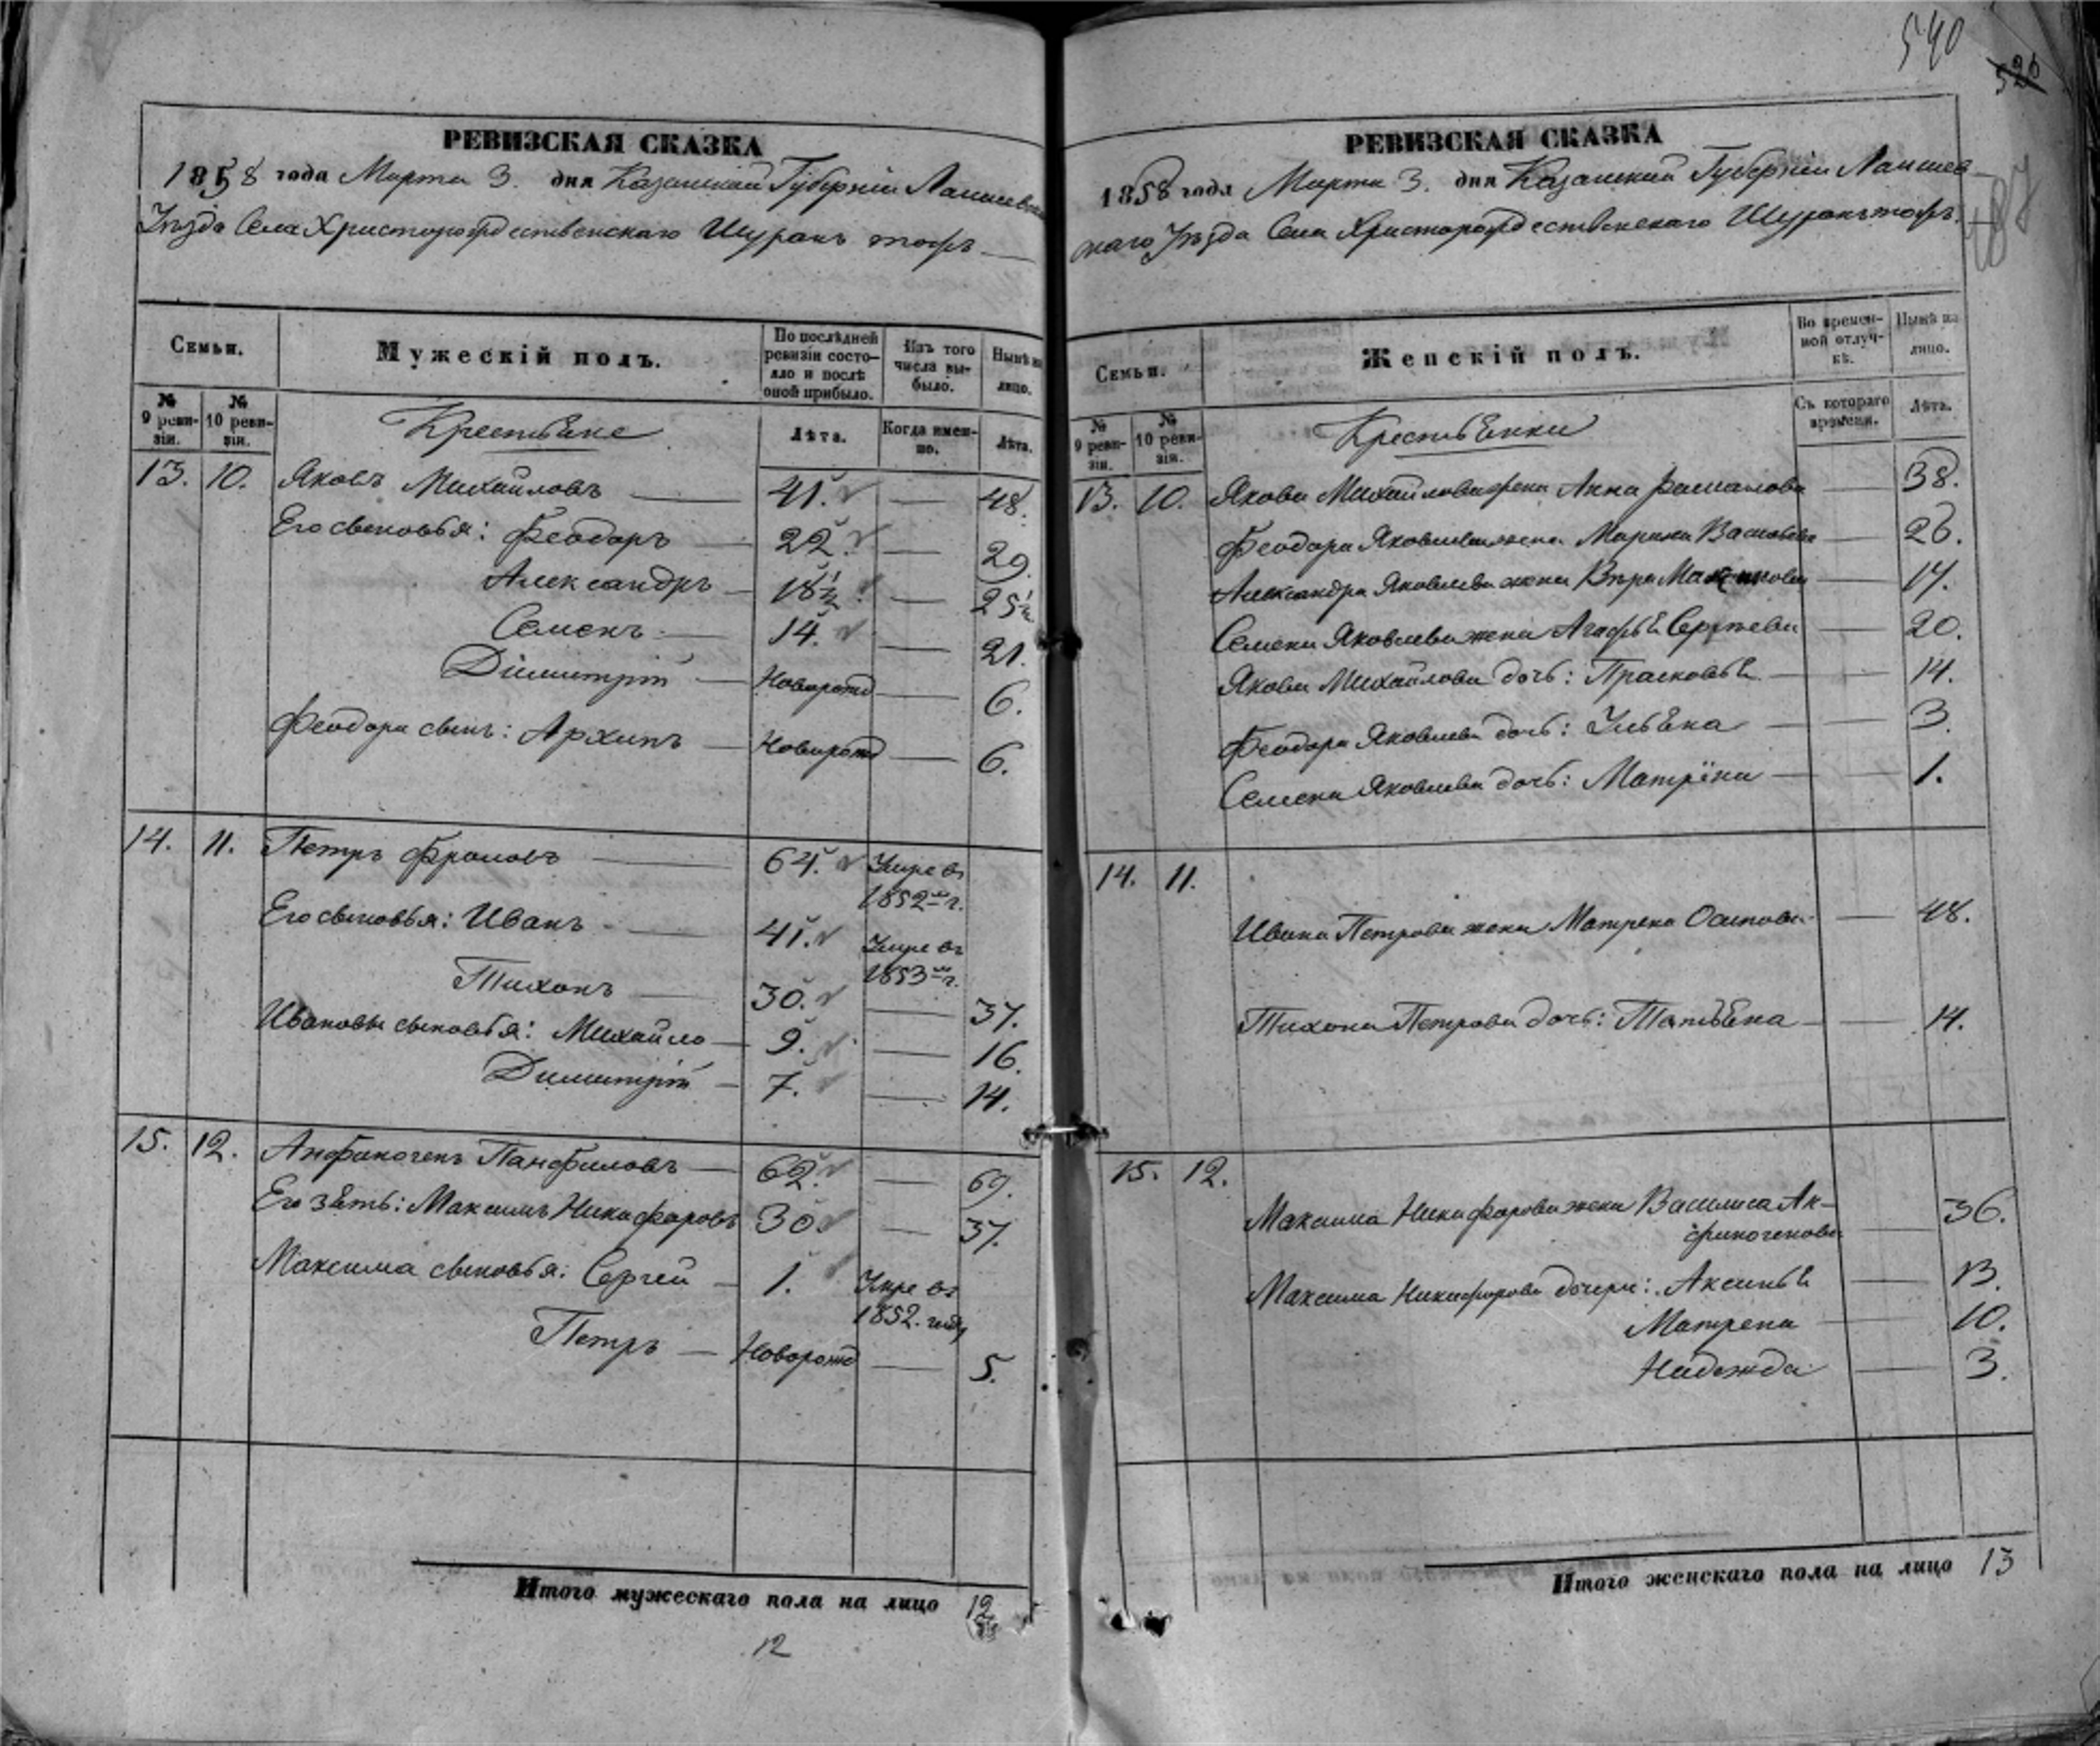 540
526
487
РЕВИЗСКАЯ СКАЗКА
1858 года Марта 3. дня Казанской Губернiи Лаишевска
Уѣзда Села Христорождественскаго Шуранъ тожъ
Семьи.
Мужескiй полъ.
По послѣдней ревизiи состояло и послѣ оной прибыло.
Изъ того числа выбыло.
Нынѣ на лицо.
№ 9 ревизiи.
№ 10 ревизiи.
Крестьяне
Лѣта.
Когда именно.
Лѣта.
13. 10. Яковъ Михайловъ — 41. — 48.
Его сыновья: Феодоръ — 22. — 29.
Александръ — 18½ — 25½
Семенъ — 14. — 21.
Димитрiй — Новорожд — 6.
Феодора сынъ: Архипъ — Новорожд — 6.
14. 11. Петръ Фроловъ — 64. Умре въ
1852м г.
Его сыновья: Иванъ — 41. Умре въ
1853м г.
Тихонъ — 30. — 37.
Ивановы сыновья: Михайло — 9. — 16.
Димитрiй — 7. — 14.
15. 12. Анфиногенъ Панфиловъ — 62. — 69.
Его зять: Максимъ Никифоровъ 30. — 37.
Максима сыновья: Сергей — 1. Умре въ
1852. году
Петръ — Новорожд — 5.
Итого мужескаго пола на лицо 12
12
РЕВИЗСКАЯ СКАЗКА
1858 года Марта 3. дня Казанской Губернiи Лаишев-
скаго Уѣзда Села Христорождественскаго Шуранъ тожъ.
Семьи.
Женскiй полъ.
Во временной отлучкѣ.
Нынѣ на лицо.
№ 9 ревизiи.
№ 10 ревизiи.
Крестьянки
Съ котораго времени.
Лѣта.
13. 10. Якова Михайлова жена Анна — 38.
Феодора Яковлева жена Марина Васильева — 26.
Александра Яковлева жена Вѣра — 17.
Семена Яковлева жена Агафья Сергѣева — 20.
Якова Михайлова дочь: Прасковья — 14.
Феодора Яковлева дочь: Ульяна — 3.
Семена Яковлева дочь: Матрёна — 1.
14. 11.
Ивана Петрова жена Матрена Осипова — 48.
Тихона Петрова дочь: Татьяна — 14.
15. 12.
Максима Никифорова жена Василиса Ан-
финогенова — 36.
Максима Никифорова дочери: Аксинья — 13.
Матрена — 10.
Надежда — 3.
Итого женскаго пола на лицо 13